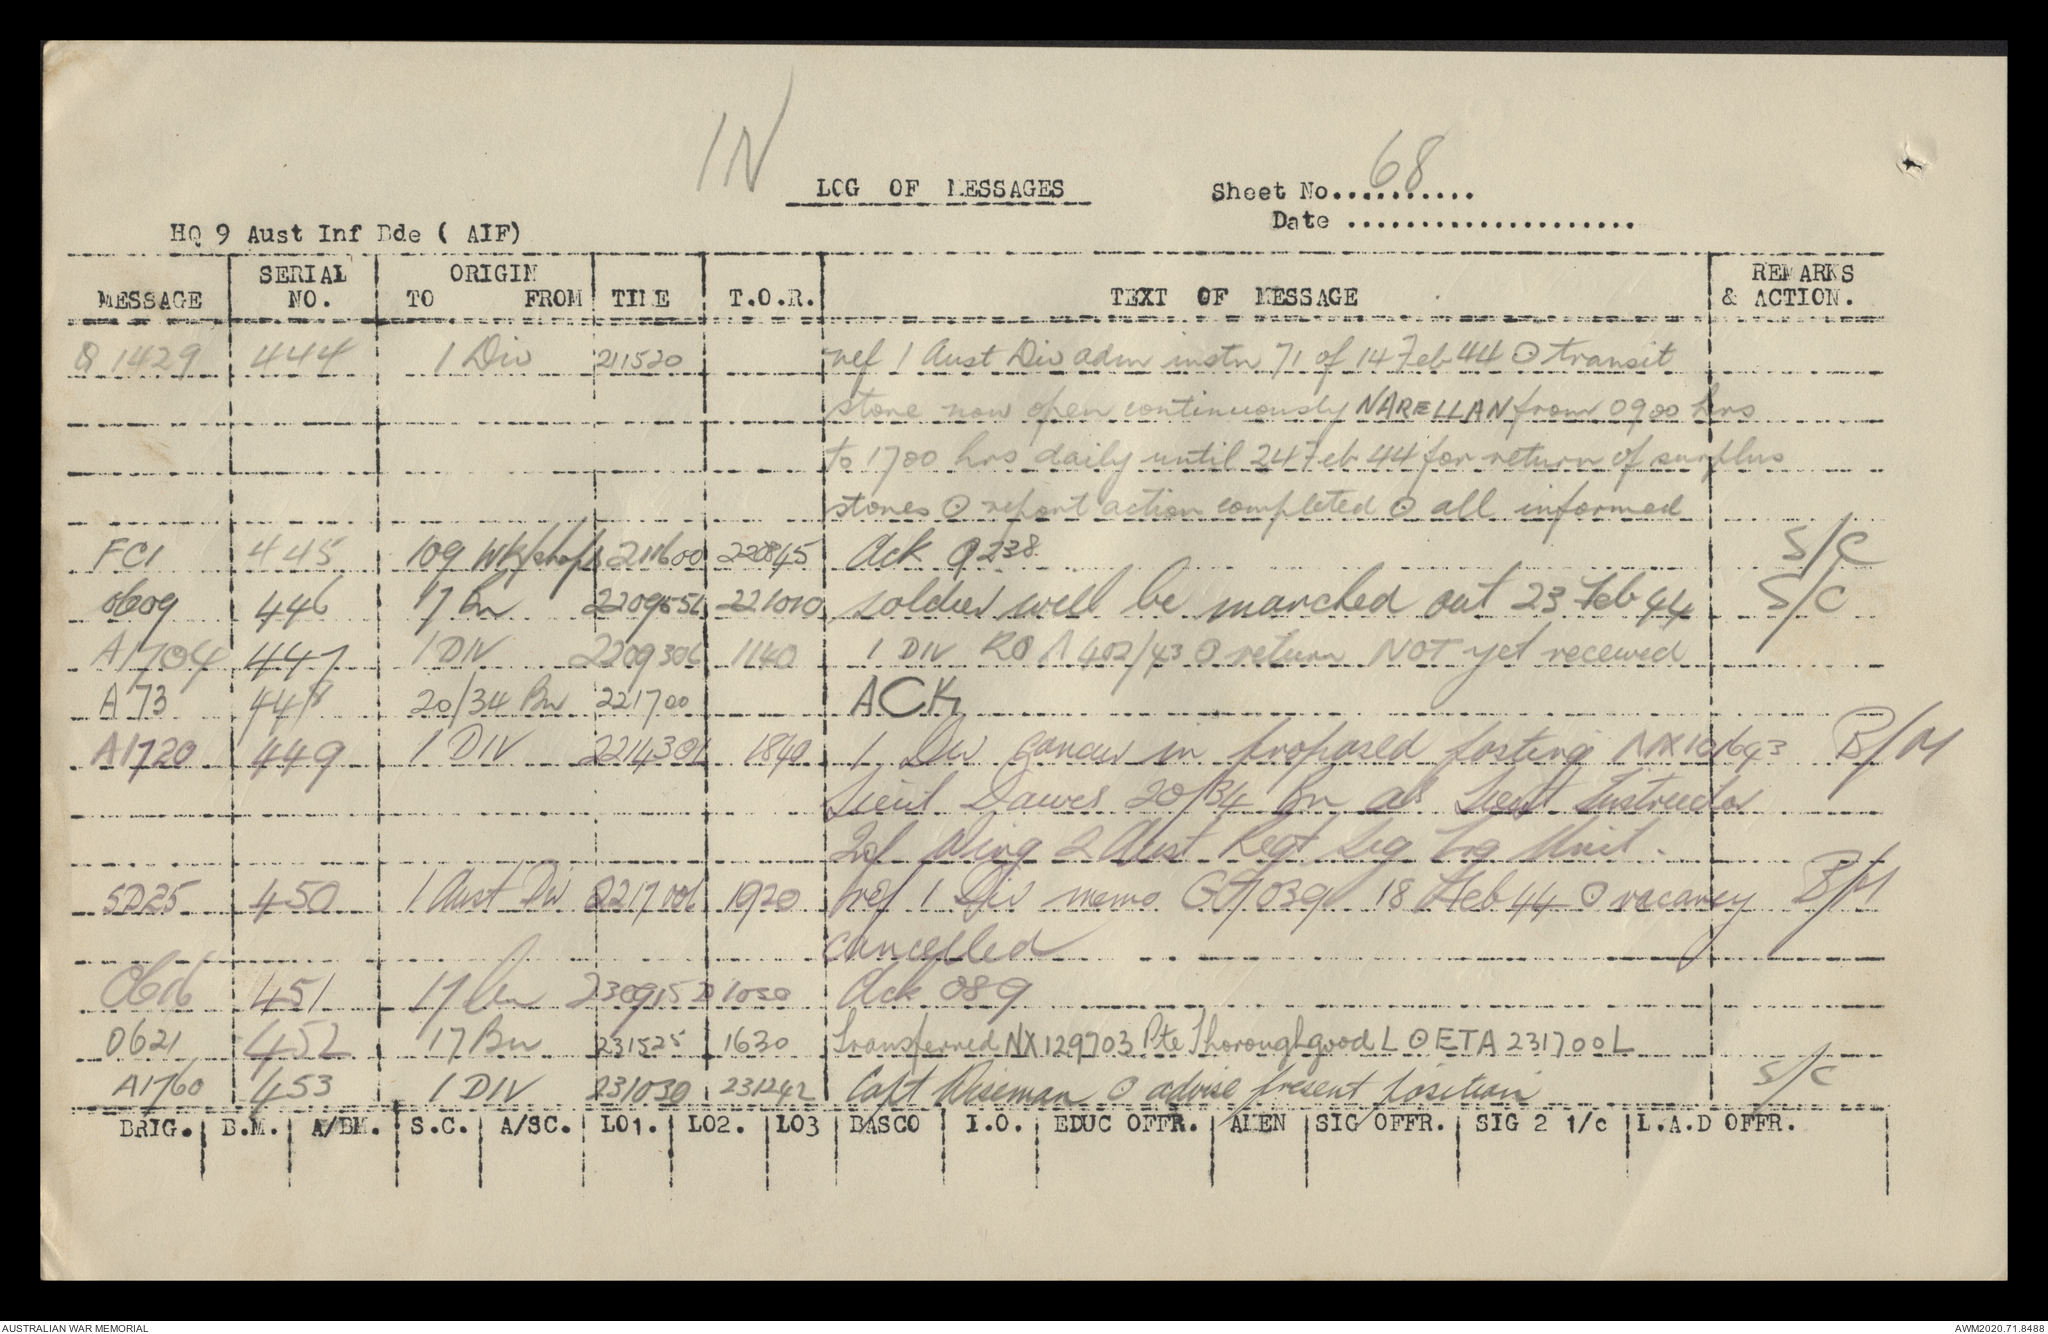 IN
LOG OF MESSAGES
Sheet No........... 68
Date .....................
HQ 9 Aust Inf Bde ( AIF)
MESSAGE SERIAL NO. ORIGIN TO FROM TIME T.O.R. TEXT OF MESSAGE REMARKS & ACTION.
Q 1429 444 1 Div 211520 ref 1 Aust Div adm instn 71 of 14 Feb 44 ⊙ transit
store now open continuously NARELLAN from 0900 hrs
to 1700 hrs daily until 24 Feb 44 for return of surplus
stores ⊙ report action completed ⊙ all informed
FC1 445 109 Wk/shops 211600 220845 Ack Q238 S/C
0609 446 17 Bn 220955L 221010 soldier will be marched out 23 Feb 44 S/C
A1704 447 1 DIV 220930L 1140 1 DIV RO A402/43 ⊙ return NOT yet received
A 73 448 20/34 Bn 221700 ACK
A1720 449 1 DIV 221430L 1840 1 Div concur in proposed posting B/M
Lieut Dawes 20/34 Bn as Lieut Instructor
Inf Wing 2 Aust Regt Sig Trg Unit.
SD25 450 1 Aust Div 221700L 1920 ref 1 Div memo 18 Feb 44 ⊙ vacancy B/M
cancelled
0616 451 17 Bn 230915 1030 Ack 089
0621 452 17 Bn 231525 1630 Transferred NX129703 Pte Thoroughgood L ⊙ ETA 231700L
A1760 453 1 DIV 231030 231242 Capt Wiseman ⊙ advise present position S/C
BRIG. B.M. A/BM. S.C. A/SC. LO1. LO2. LO3 BASCO I.O. EDUC OFFR. AMEN SIG OFFR. SIG 2 1/c L.A.D OFFR.
AUSTRALIAN WAR MEMORIAL AWM2020.71.8488